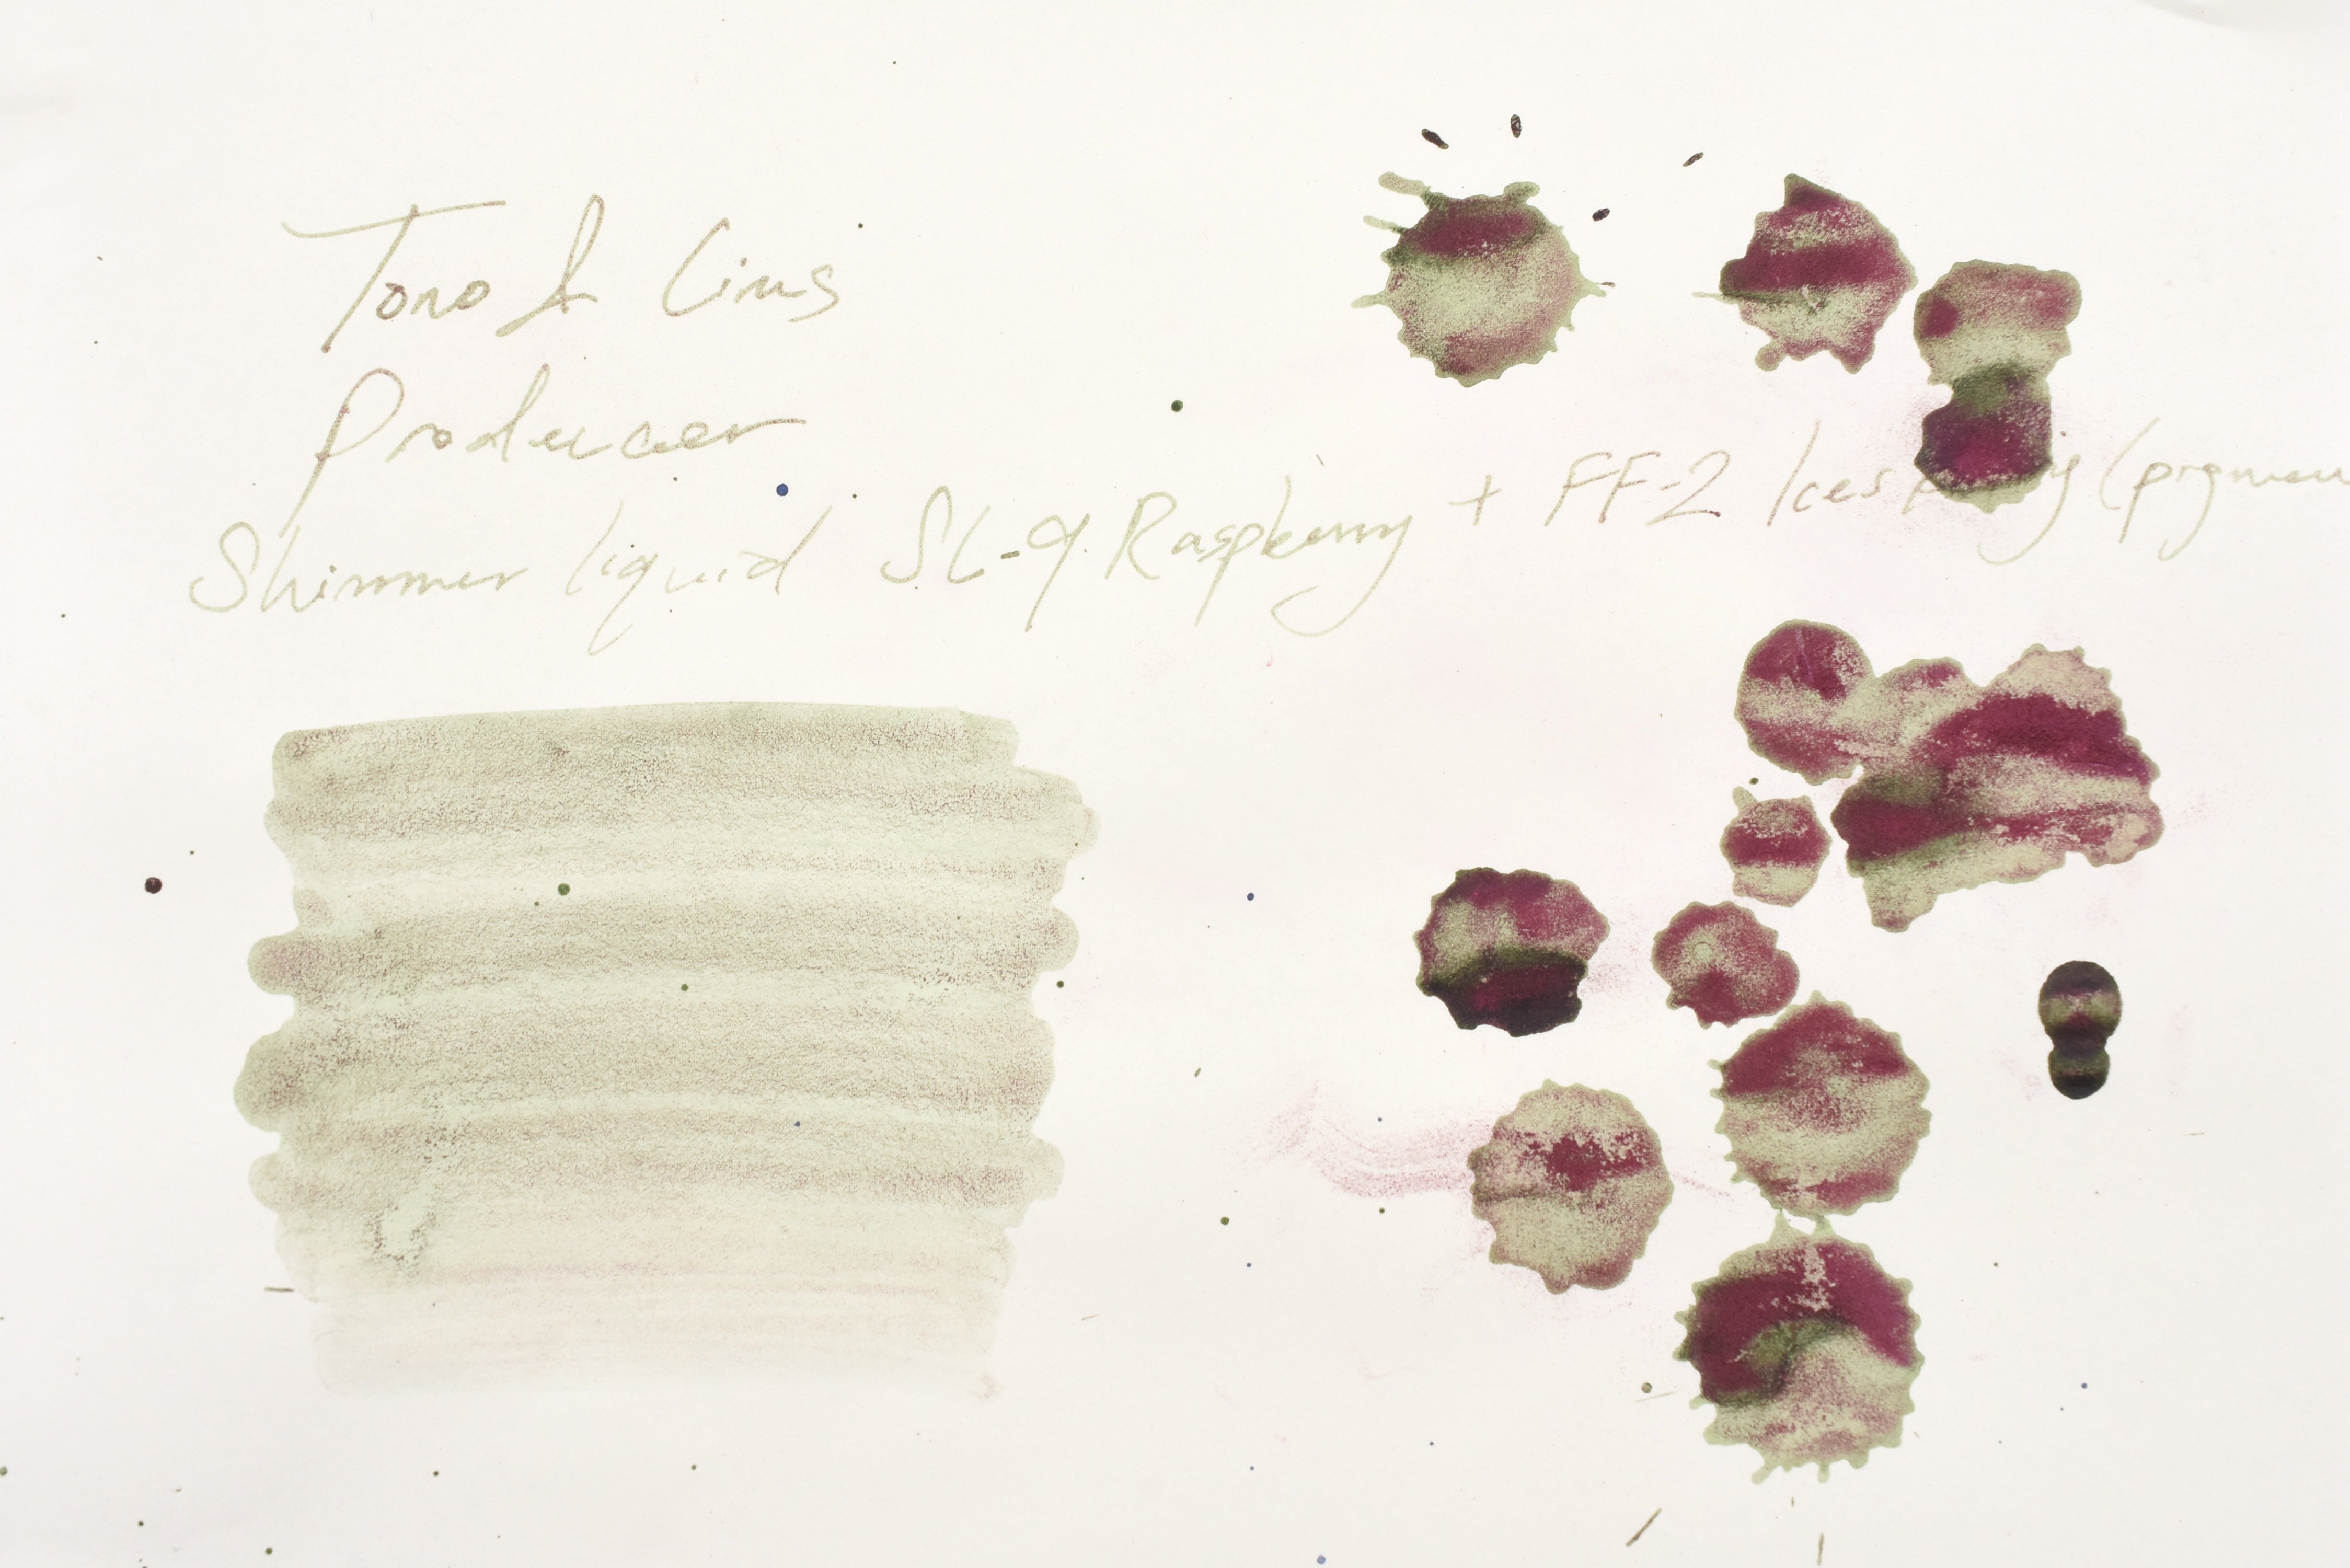 Tono & Lims
Producer
Shimmer liquid SL-9 Raspberry + FF-2 (pigmen